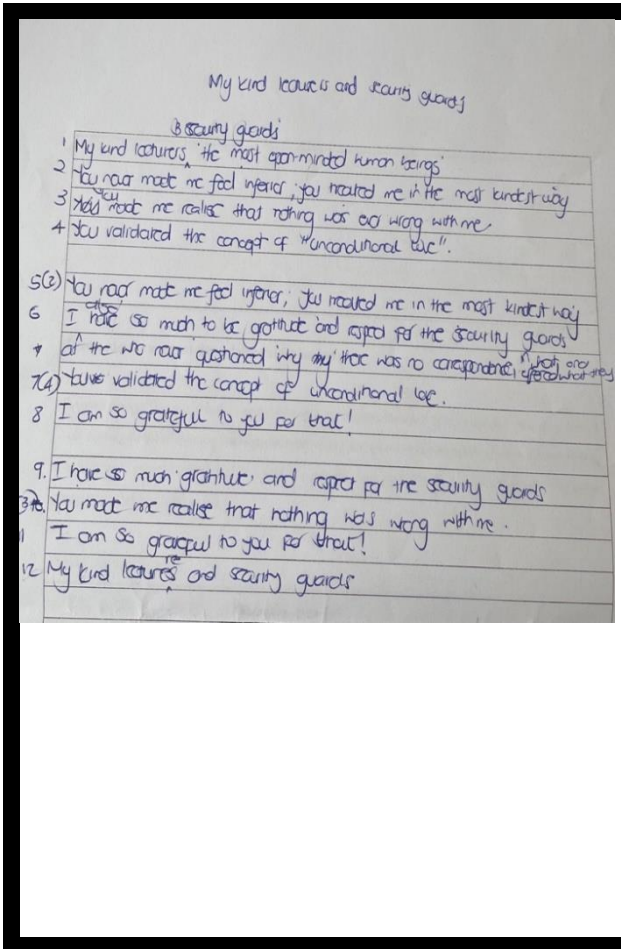 My kind lecturers and security guards
& security guards
1 My kind lecturers, the most open-minded human beings
2 You never made me feel inferior; you treated me in the most kindest way
3 You made me realise that nothing was ever wrong with me
4 You validated the concept of "unconditional love".
5(2) You never made me feel inferior; you treated me in the most kindest way
6 I have so much to be gratitude and respect for the security guards
at the who never questioned why my there was no correspondence,
7(4) You've validated the concept of unconditional love.
8 I am so grateful to you for that!
9. I have so much gratitude and respect for the security guards
You made me realise that nothing was wrong with me.
11 I am so grateful to you for that!
12 My kind lectures and security guards